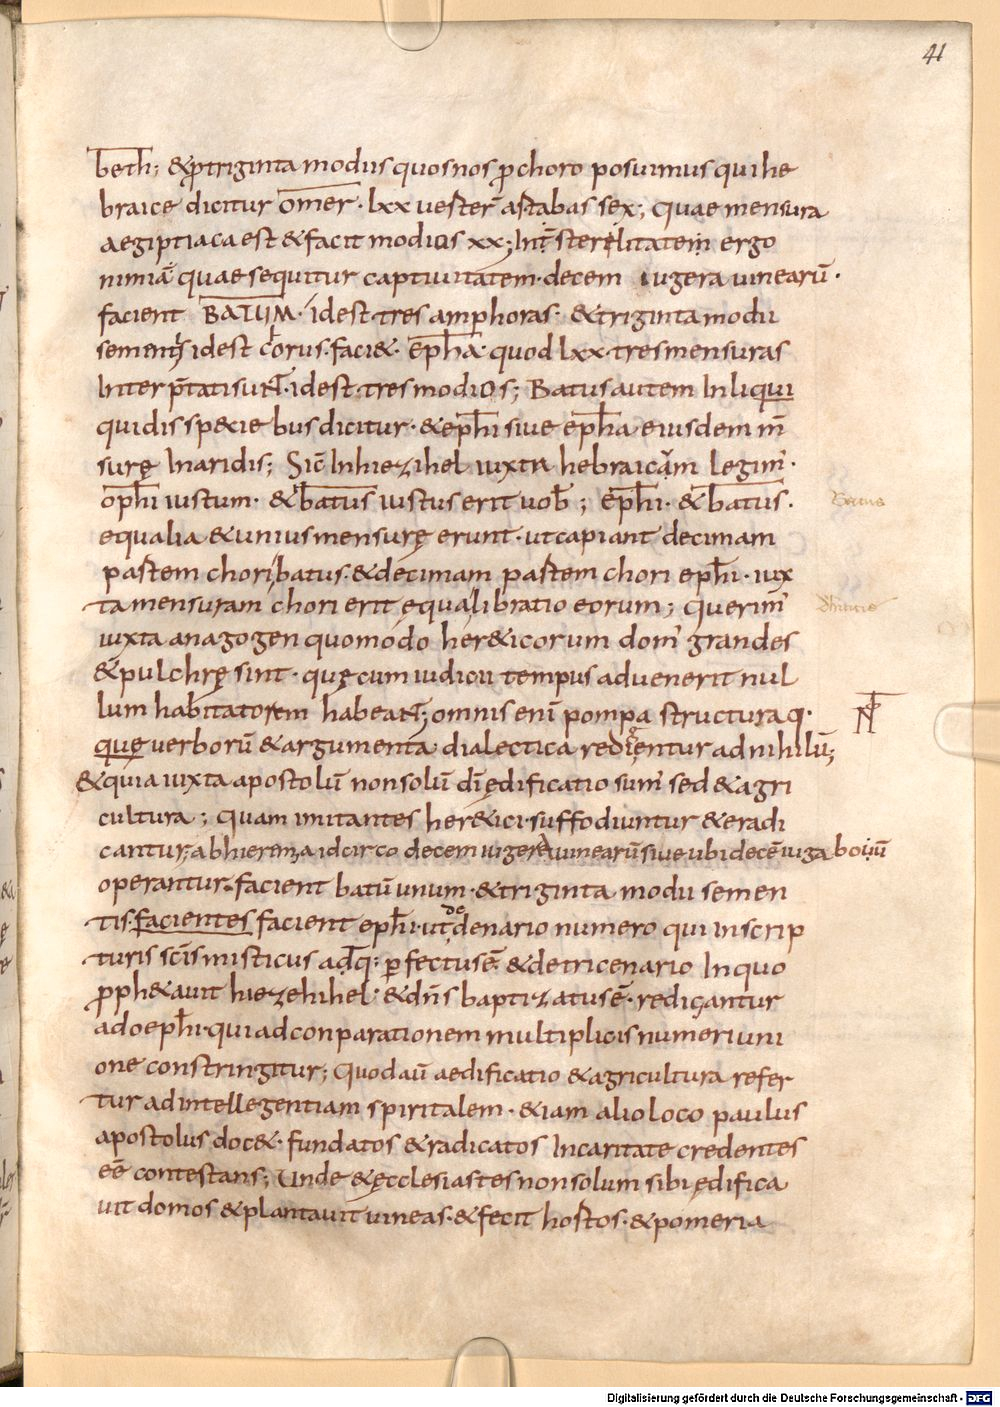 41
beth; & ꝓ triginta modiis quos nos ꝓ choro posuimus qui he
braice dicitur omer · lxx uester̄ astabas sex; Quae mensura
aegiptiaca est & facit modios xx; Int̄ sterelitatem ergo
nimiā quae sequitur captiuitatem · decem iugera uinearū ·
facient BATUM · idest tres amphoras · & triginta modii
sementis idest chorus · faci& · epha · quod lxx · tres mensuras
Inter p̄tati sunt · idest · tres modios; Batus autem In liqui
quidis speciebus dicitur · & ephi siue epha eiusdem m̄
surę In aridis; Sic̄ In hiezihel iuxta hebraicam legim̄ ·
ophi iustum · & batus iustus erit uob̄; ephi · & batus ·
Batus
equalia & unius mensurę erunt · ut capiant decimam
pastem chori batus · & decimam pastem chori ephi · iux
ta mensuram chori erit ęqua libratio eorum; Querim̄
iuxta anagogen quomodo her&icorum dom̄ grandes
& pulchrę sint · quę cum iudicii tempus aduenerit nul
lum habitatorem habeant; omnis enī pompa structura q·
quę uerborū & argumenta dialectica redientur ad nihilū;
& quia iuxta apostolū non solū dī ędificatio sum̄ sed & agri
cultura; Quam imitantes her&ici · suffodiuntur & eradi
cantur; ab hieremia idcirco decem iugera uinearū siue ubi decē iuga bouū
operantur · facient batū unum · & triginta modii semen
tis · facientes facient ephi · ut de denario numero qui in scrip
turis sc̄is misticus adq: perfectus ē · & de tricenario In quo
ꝓph&auit hiezehihel · & dn̄s baptizatus ē · redigantur
ad oephi · qui ad conparationem multiplicis numeri uni
one constringitur; Quod aū aedificatio & agricultura refer
tur ad intellegentiam spiritalem · & iam alio loco paulus
apostolus doc& · fundatos & radicatos In caritate credentes
eē contestans; Unde & ęcclesiastes non solum sibi ędifica
uit domos & plantauit uineas · & fecit hostos · & pomeria
Digitalisierung gefördert durch die Deutsche Forschungsgemeinschaft - DFG